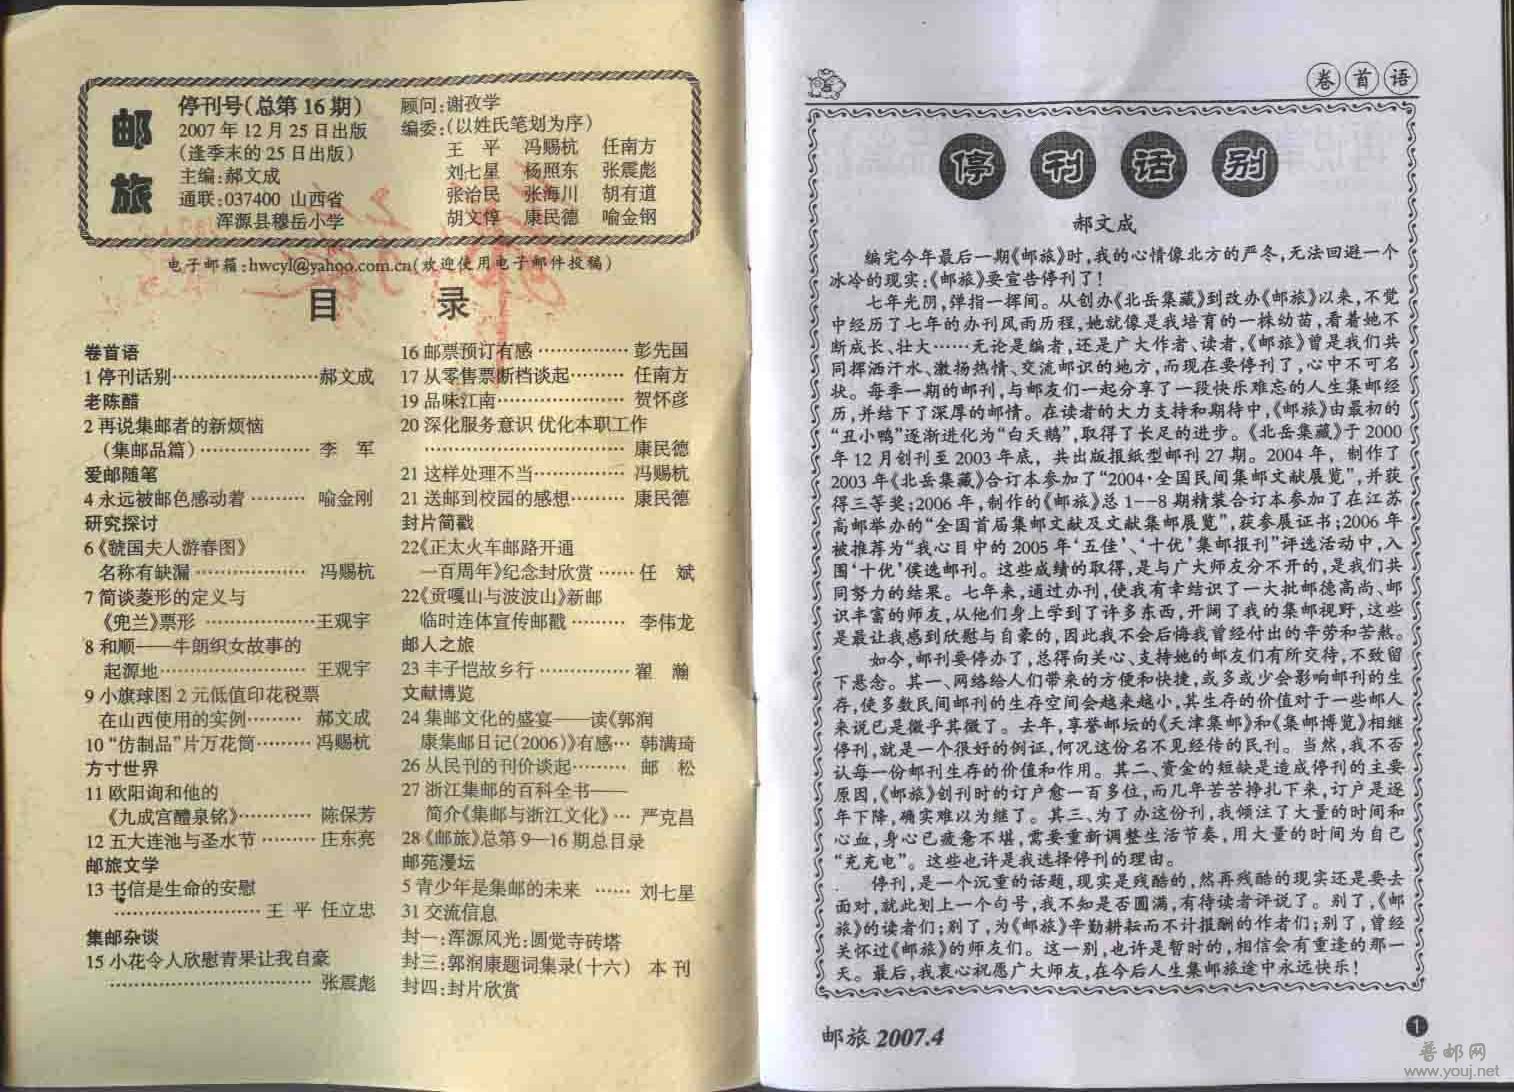 邮旅
停刊号(总第16期)
2007年12月25日出版
(逢季末的25日出版)
主编:郝文成
通联:037400 山西省
浑源县穆岳小学
顾问:谢孜学
编委:(以姓氏笔划为序)
王 平 冯赐杭 任南方
刘七星 杨照东 张震彪
张治民 张海川 胡有道
胡文惇 康民德 喻金钢
电子邮箱:hwcyl@yahoo.com.cn(欢迎使用电子邮件投稿)
目 录
卷首语
1 停刊话别……………………郝文成
老陈醋
2 再说集邮者的新烦恼
(集邮品篇)……………… 李 军
爱邮随笔
4 永远被邮色感动着……… 喻金刚
研究探讨
6《虢国夫人游春图》
名称有缺漏……………… 冯赐杭
7 简谈菱形的定义与
《兜兰》票形 ………………王观宇
8 和顺——牛朗织女故事的
起源地…………………… 王观宇
9 小旗球图2元低值印花税票
在山西使用的实例……… 郝文成
10 “仿制品”片万花筒……… 冯赐杭
方寸世界
11 欧阳询和他的
《九成宫醴泉铭》………… 陈保芳
12 五大连池与圣水节……… 庄东亮
邮旅文学
13 书信是生命的安慰
…………………… 王 平 任立忠
集邮杂谈
15 小花令人欣慰青果让我自豪
…………………………… 张震彪
16 邮票预订有感…………… 彭先国
17 从零售票断档谈起……… 任南方
19 品味江南………………… 贺怀彦
20 深化服务意识 优化本职工作
…………………………… 康民德
21 这样处理不当…………… 冯赐杭
21 送邮到校园的感想……… 康民德
封片简戳
22《正太火车邮路开通
一百周年》纪念封欣赏…… 任 斌
22《贡嘎山与波波山》新邮
临时连体宣传邮戳……… 李伟龙
邮人之旅
23 丰子恺故乡行…………… 翟 瀚
文献博览
24 集邮文化的盛宴——读《郭润
康集邮日记(2006)》有感… 韩满琦
26 从民刊的刊价谈起……… 邮 松
27 浙江集邮的百科全书——
简介《集邮与浙江文化》… 严克昌
28《邮旅》总第9—16期总目录
邮苑漫坛
5 青少年是集邮的未来 …… 刘七星
31 交流信息
封一:浑源风光:圆觉寺砖塔
封三:郭润康题词集录(十六) 本 刊
封四:封片欣赏
卷首语
停刊话别
郝文成
编完今年最后一期《邮旅》时,我的心情像北方的严冬,无法回避一个
冰冷的现实:《邮旅》要宣告停刊了!
七年光阴,弹指一挥间。从创办《北岳集藏》到改办《邮旅》以来,不觉
中经历了七年的办刊风雨历程,她就像是我培育的一株幼苗,看着她不
断成长、壮大……无论是编者,还是广大作者、读者,《邮旅》曾是我们共
同挥洒汗水、激扬热情、交流邮识的地方,而现在要停刊了,心中不可名
状。每季一期的邮刊,与邮友们一起分享了一段快乐难忘的人生集邮经
历,并结下了深厚的邮情。在读者的大力支持和期待中,《邮旅》由最初的
“丑小鸭”逐渐进化为“白天鹅”,取得了长足的进步。《北岳集藏》于2000
年12月创刊至2003年底,共出版报纸型邮刊27期。2004年,制作了
2003年《北岳集藏》合订本参加了“2004·全国民间集邮文献展览”,并获
得三等奖;2006年,制作的《邮旅》总1—8期精装合订本参加了在江苏
高邮举办的“全国首届集邮文献及文献集邮展览”,获参展证书;2006年
被推荐为“我心目中的2005年‘五佳’、‘十优’集邮报刊”评选活动中,入
围‘十优’侯选邮刊。这些成绩的取得,是与广大师友分不开的,是我们共
同努力的结果。七年来,通过办刊,使我有幸结识了一大批邮德高尚、邮
识丰富的师友,从他们身上学到了许多东西,开阔了我的集邮视野,这些
是最让我感到欣慰与自豪的,因此我不会后悔我曾经付出的辛劳和苦熬。
如今,邮刊要停办了,总得向关心、支持她的邮友们有所交待,不致留
下悬念。其一、网络给人们带来的方便和快捷,或多或少会影响邮刊的生
存,使多数民间邮刊的生存空间会越来越小,其生存的价值对于一些邮人
来说已是微乎其微了。去年,享誉邮坛的《天津集邮》和《集邮博览》相继
停刊,就是一个很好的例证,何况这份名不见经传的民刊。当然,我不否
认每一份邮刊生存的价值和作用。其二、资金的短缺是造成停刊的主要
原因,《邮旅》创刊时的订户愈一百多位,而几年苦苦挣扎下来,订户是逐
年下降,确实难以为继了。其三、为了办这份刊,我倾注了大量的时间和
心血,身心已疲惫不堪,需要重新调整生活节奏,用大量的时间为自己
“充充电”。这些也许是我选择停刊的理由。
停刊,是一个沉重的话题,现实是残酷的,然再残酷的现实还是要去
面对,就此划上一个句号,我不知是否圆满,有待读者评说了。别了,《邮
旅》的读者们;别了,为《邮旅》辛勤耕耘而不计报酬的作者们;别了,曾经
关怀过《邮旅》的师友们。这一别,也许是暂时的,相信会有重逢的那一
天。最后,我衷心祝愿广大师友,在今后人生集邮旅途中永远快乐!
邮旅 2007.4
1
普邮网
www.youj.net